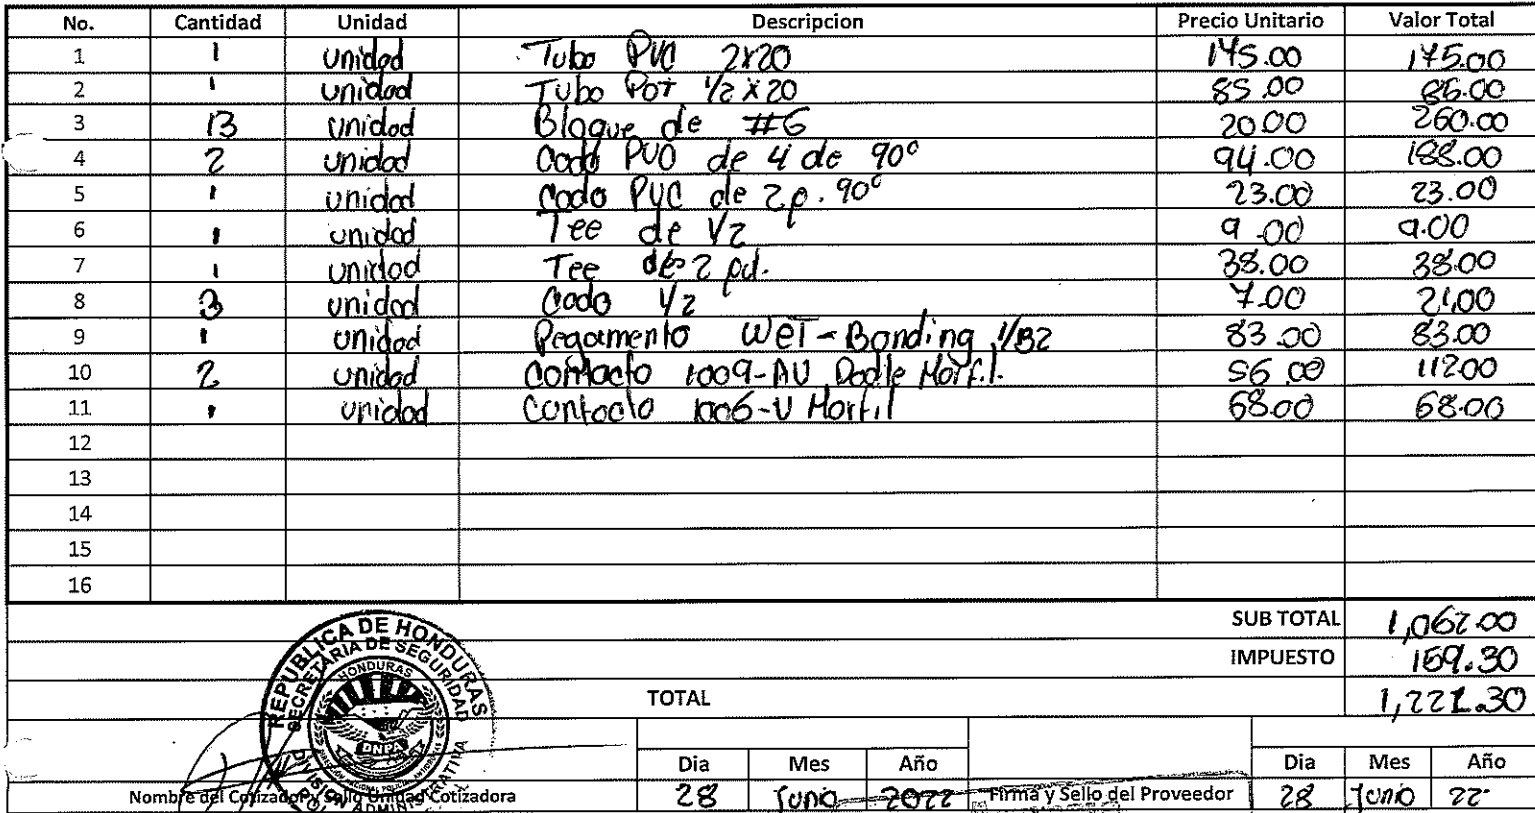 No. Cantidad Unidad Descripcion Precio Unitario Valor Total
1 1 unidad Tubo PVC 2x20 175.00 175.00
2 1 unidad Tubo Pot 1/2 x 20 85.00 85.00
3 13 unidad Bloque de #6 20.00 260.00
4 2 unidad Codo PVC de 4 de 90° 94.00 188.00
5 1 unidad Codo PVC de 2 p. 90° 23.00 23.00
6 1 unidad Tee de 1/2 9.00 9.00
7 1 unidad Tee de 2 pul. 38.00 38.00
8 3 unidad Codo 1/2 7.00 21.00
9 1 unidad Pegamento Wet-Bonding 1/32 83.00 83.00
10 2 unidad Contacto 1009-AV Dodle Morfil. 56.00 112.00
11 1 unidad Contacto 1006-V Morfil 68.00 68.00
12
13
14
15
16
SUB TOTAL 1,062.00
IMPUESTO 159.30
TOTAL 1,221.30
REPUBLICA DE HONDURAS
SECRETARIA DE SEGURIDAD
HONDURAS
DNPA
Dia Mes Año Dia Mes Año
Nombre del Cotizador y Sello Unidad Cotizadora 28 Junio 2022 Firma y Sello del Proveedor 28 Junio 22